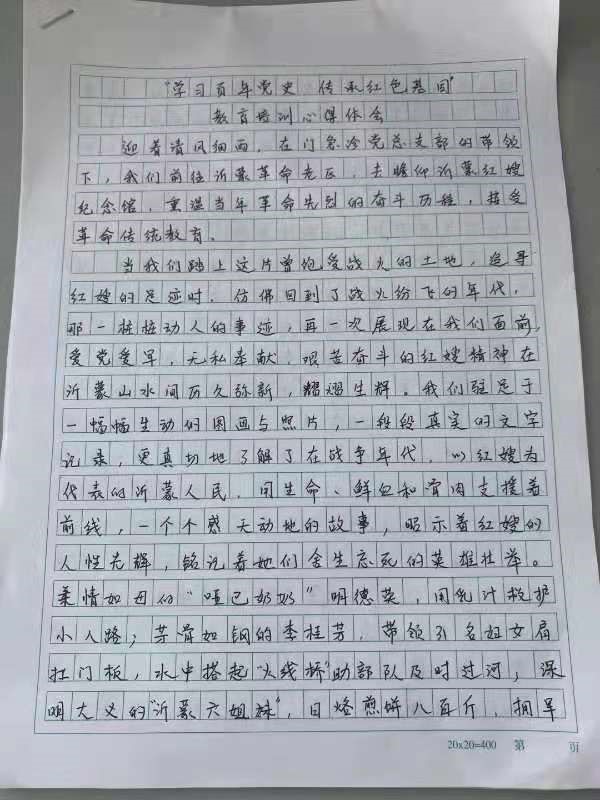 "学习百年党史 传承红色基因"
教育培训心得体会
迎着清风细雨，在门急诊党总支部的带领
下，我们前往沂蒙革命老区，去瞻仰沂蒙红嫂
纪念馆，重温当年革命先烈的奋斗历程，接受
革命传统教育。
当我们踏上这片曾饱受战火的土地，追寻
红嫂的足迹时，仿佛回到了战火纷飞的年代，
那一桩桩动人的事迹，再一次展现在我们面前，
爱党爱军，无私奉献，艰苦奋斗的红嫂精神在
沂蒙山水间历久弥新，熠熠生辉。我们驻足于
一幅幅生动的图画与照片，一段段真实的文字
记录，更真切地了解了在战争年代，以红嫂为
代表的沂蒙人民，用生命、鲜血和骨肉支援着
前线，一个个感天动地的故事，昭示着红嫂的
人性光辉，铭记着她们舍生忘死的英雄壮举。
柔情如母的"哑巴奶奶"明德英，用乳汁救护
小八路；芳骨如钢的李桂芳，带领引名妇女肩
扛门板，水中搭起"火线桥"助部队及时过河；深
明大义的"沂蒙六姐妹"，日烙煎饼八百斤，拥军
20x20=400 第 页